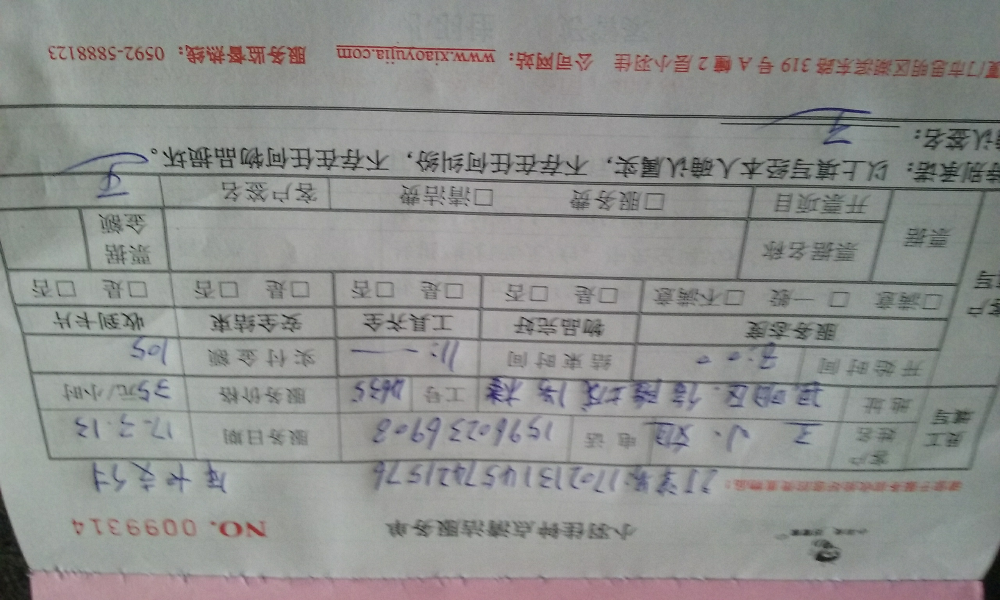 小羽佳钟点清洁服务单 NO. 0099314
订单号:1702131457421576 厦十支付
员工填写 客户姓名 王小姐 电话 15960236908 服务日期 17.3.13
地址 思明区 工号 D635 服务价格 35元/小时
开始时间 8:00 结束时间 11:一 实付金额 105
客户填写 服务态度 物品完好 工具齐全 安全结束 收到卡片
□满意 □一般 □不满意 □是 □否 □是 □否 □是 □否 □是 □否
票据 票据名称 票据金额
开票项目 □服务费 □清洁费 客户签名 王
特别承诺:以上填写经本人确认属实,不存在任何纠纷,不存在任何物品损坏。
确认签名:王
厦门市思明区湖滨东路 319 号 A 幢 2 层小羽佳 公司网站:www.xiaoyujia.com 服务监督热线:0592-5888123